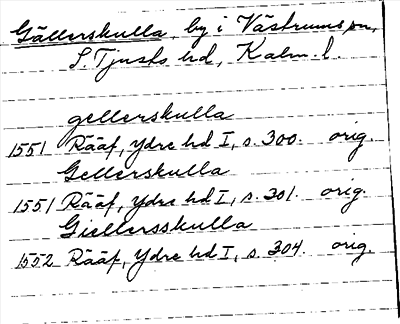 Gällerskulla, by i Västrums sn,
S. Tjusts hd, Kalm. l.
gellerskulla
1551 Rääf, Ydre hd I, s. 300. orig.
Gellerskulla
1551 Rääf, Ydre hd I, s. 301. orig.
Giellersskulla
1552 Rääf, Ydre hd I, s. 304. orig.